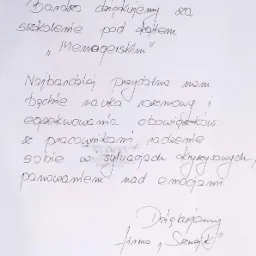 Bardzo dziękujemy za
szkolenie pod kątem
„Menagerskim"
Najbardziej przydatna nam
będzie nauka rozmowy i
egzekwowania obowiązków
z pracownikami radzenie
sobie w sytuacjach kryzysowych,
panowaniem nad emocjami
Dziękujemy
firma „